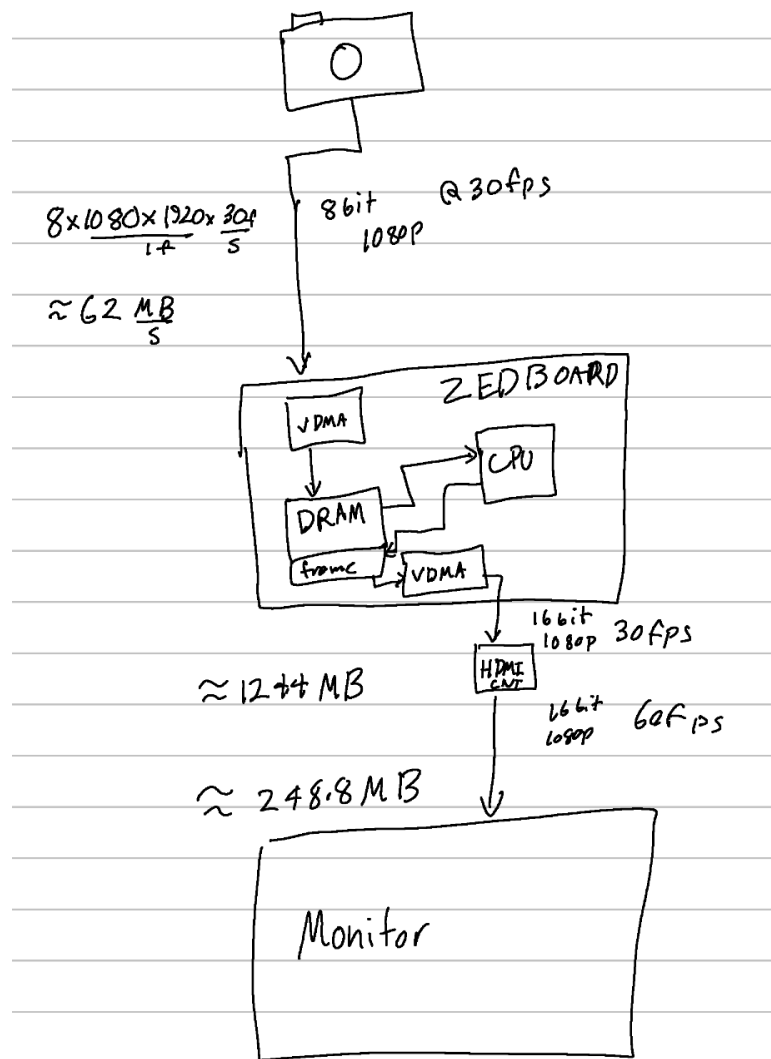 8bit @30fps
1080p
8x1080x1920x 30f
1f S
≈62 MB
S
ZEDBOARD
VDMA
CPU
DRAM
frame
VDMA
16bit
1080p 30fps
HDMI
CNT
≈124.4 MB
16bit
1080p 60fps
≈ 248.8MB
Monitor